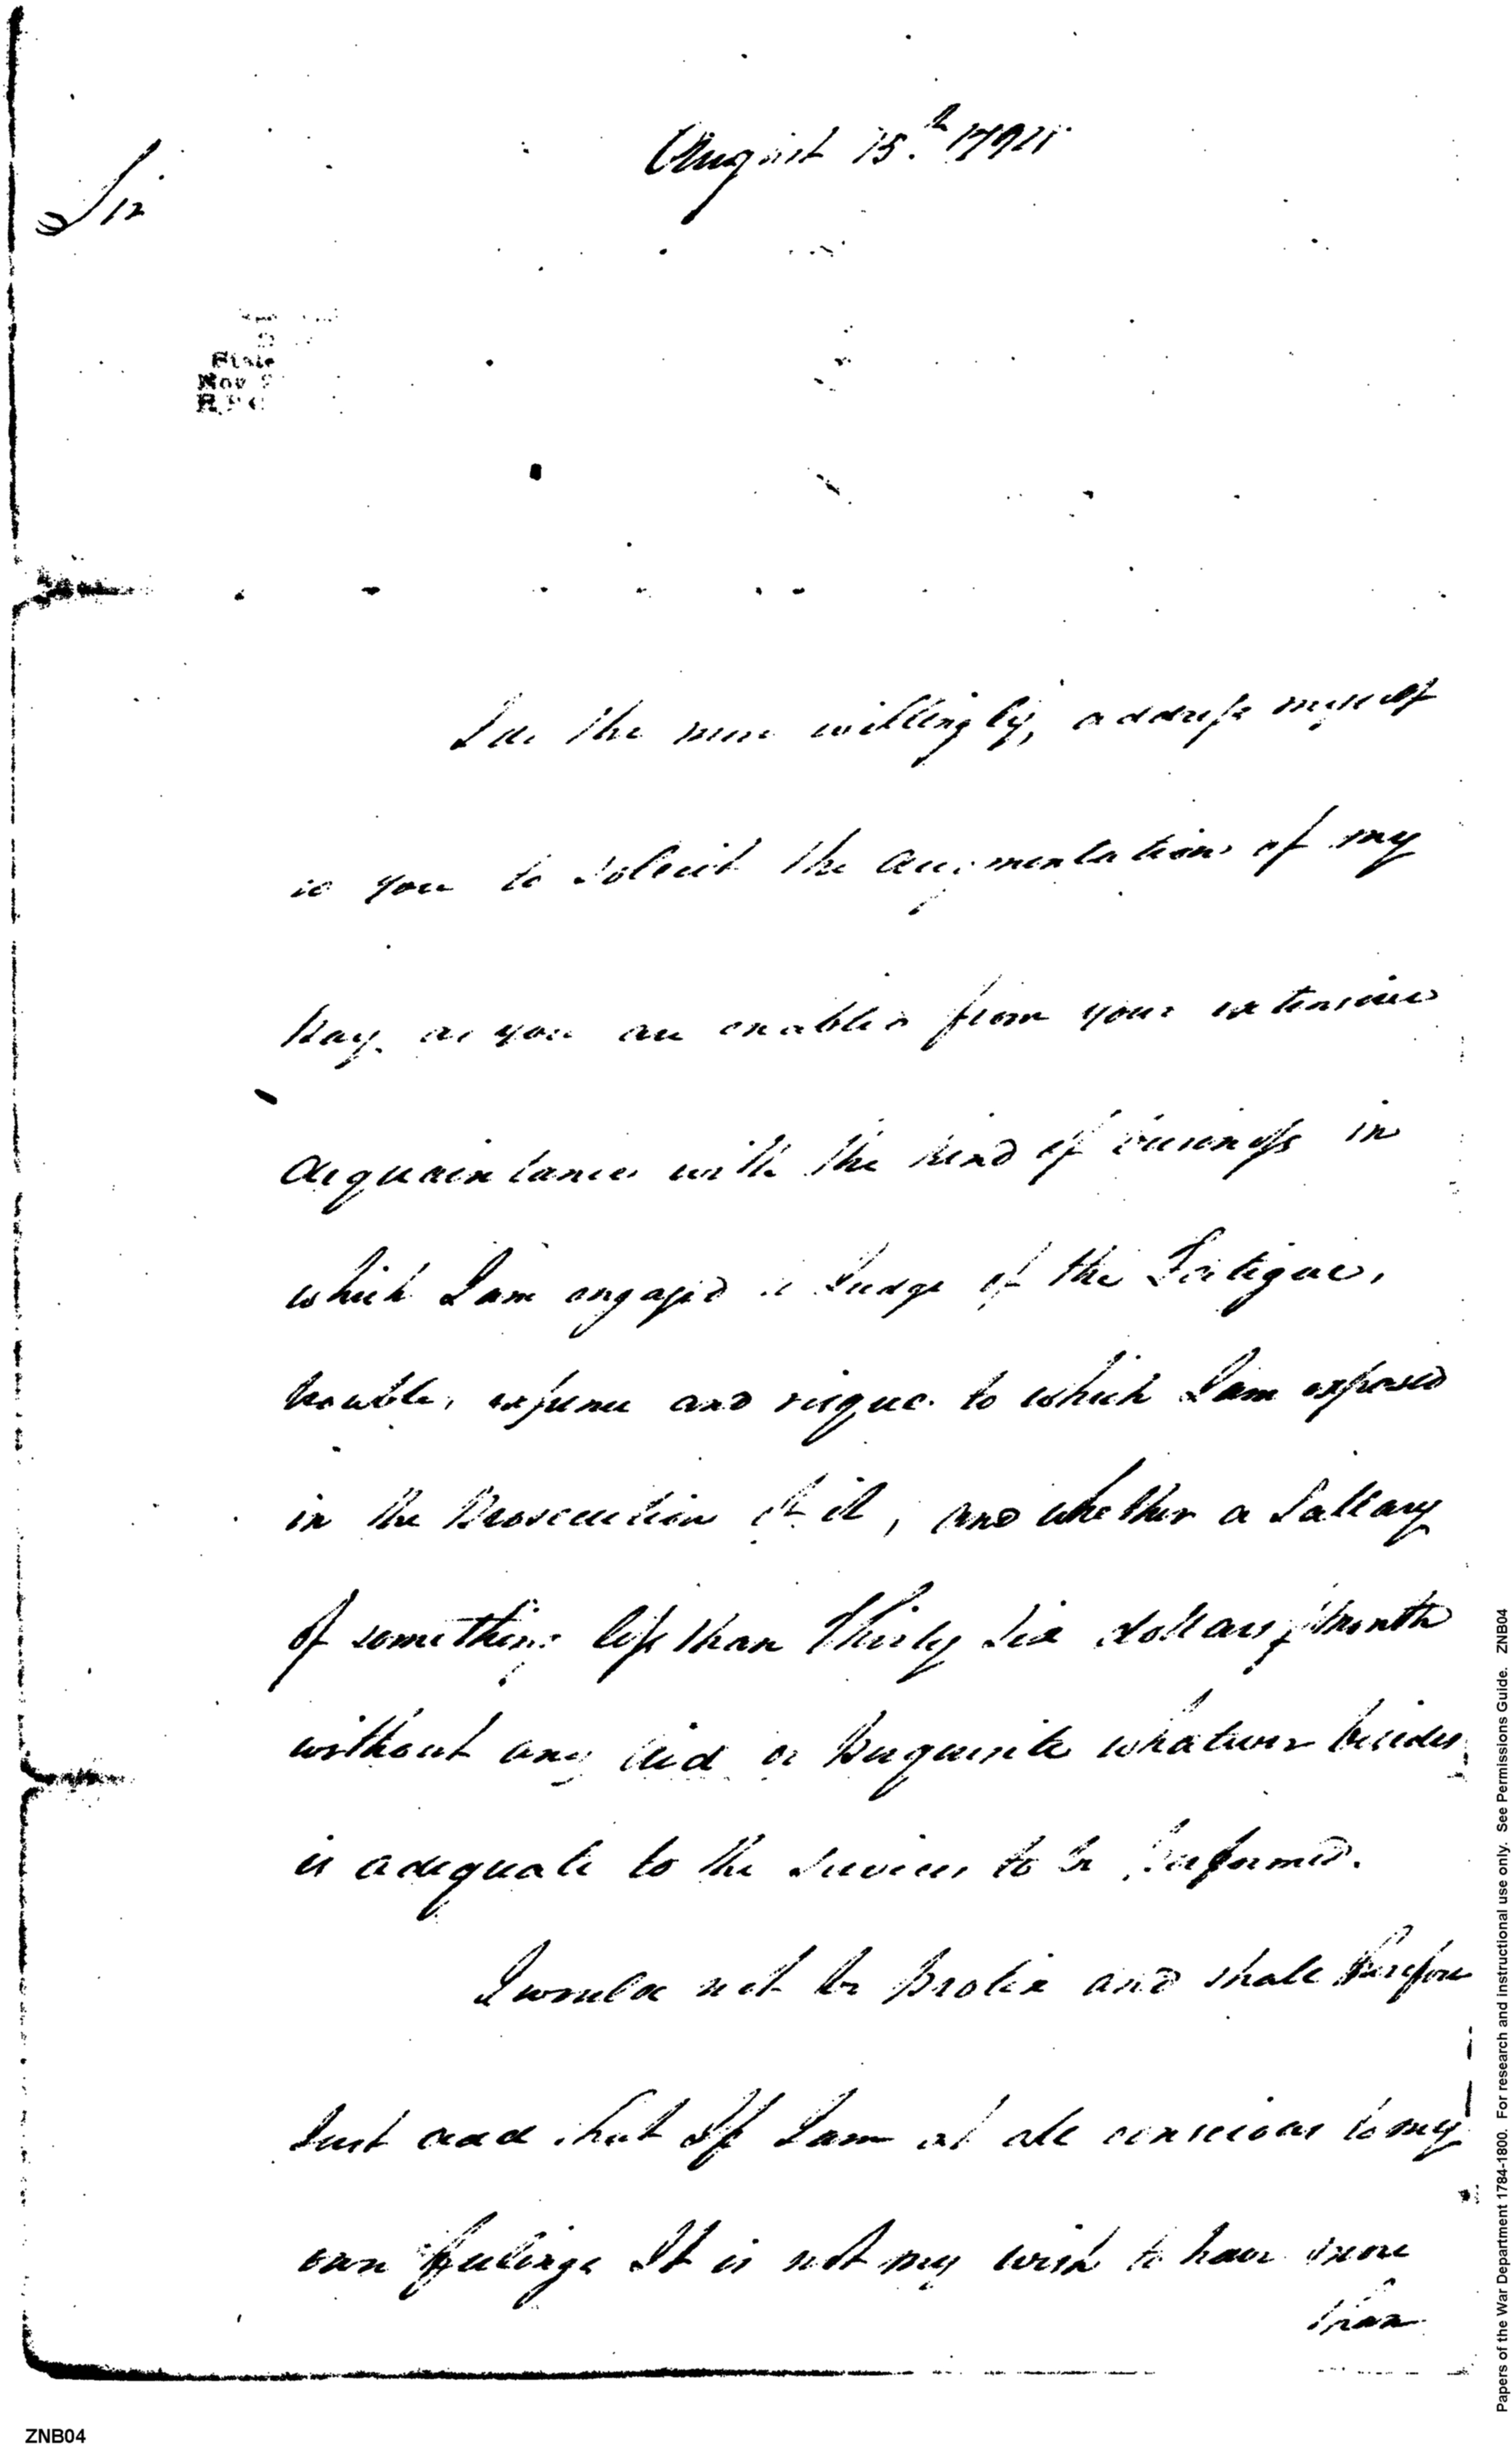 August 15.th
Sir
State
Nov
I do the more willingly, address myself
to you to solicit the augmentation of my
Pay. as you are enabled from your extensive
acquaintance with the kind of business in
which I am engaged to Judge of the Fatigue,
trouble, expense and risque to which I am exposed
in the Prosecution of it, and whether a Sallary
of something less than Thirty Six dollars Month
without any aid or Perquisite whatever besides
is adequate to the Services to be Performed.
I would not be Prolix and shall therefore
Just add that If I am at all conscious to my
own feelings It is not my wish to have more
than
Papers of the War Department 1784-1800. For research and instructional use only. See Permissions Guide. ZNB04
ZNB04